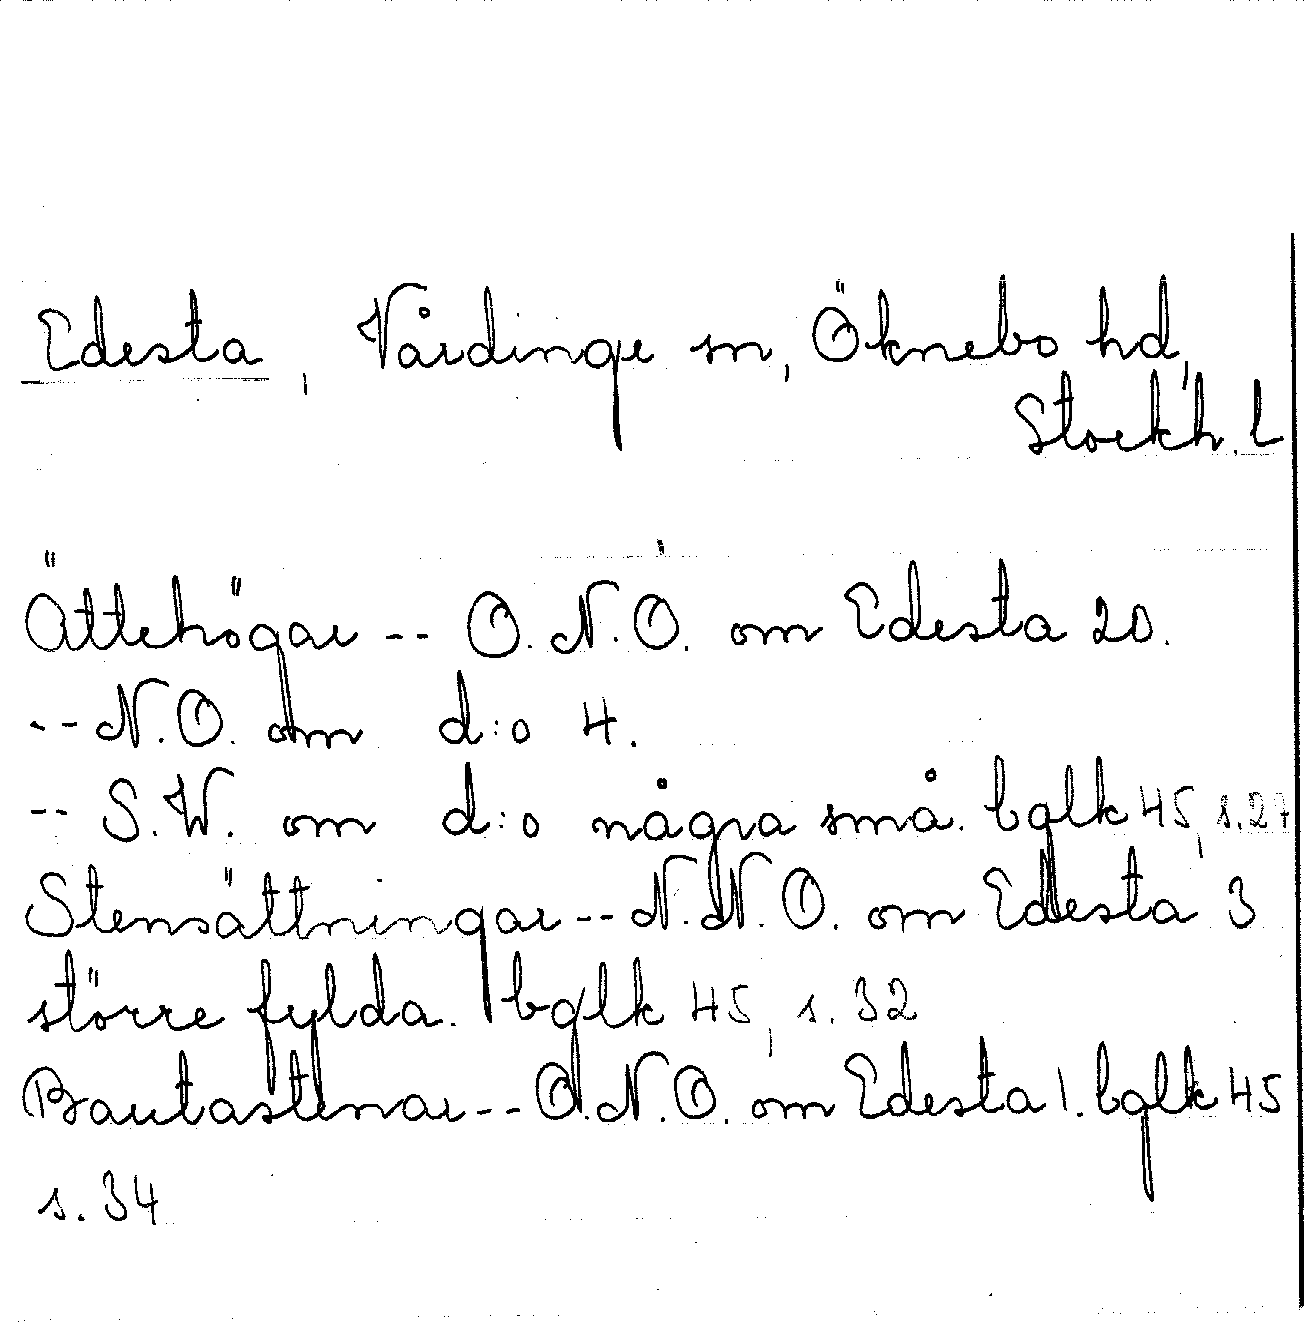 Edesta, Vårdinge sn, Öknebo hd,
Stockh. L
Ättehögar -- O.N.O. om Edesta 20.
-- N.O. om d:o 4.
-- S.W. om d:o några små. bglk 45, s.27
Stensättningar -- N.N.O. om Edesta 3
större fylda. bglk 45, s. 32
Bautastenar -- O.N.O. om Edesta 1. bglk 45
s. 34